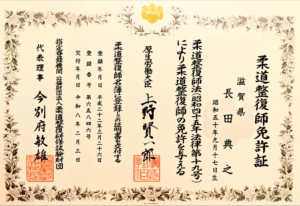 柔道整復師免許証
滋賀県
長田典之
昭和五十年九月十七日生
柔道整復師法(昭和四十五年法律第十九号)
により柔道整復師の免許を与える
厚生労働大臣 上野賢一郎
柔道整復師名簿登録の証明書を持する
登録年月日 平成二十二年三月二十六日
登録番号 第六五八四六号
交付年月日 令和八年二月三日
指定登録機関 公益財団法人柔道整復研修試験財団
代表理事 今別府敏雄